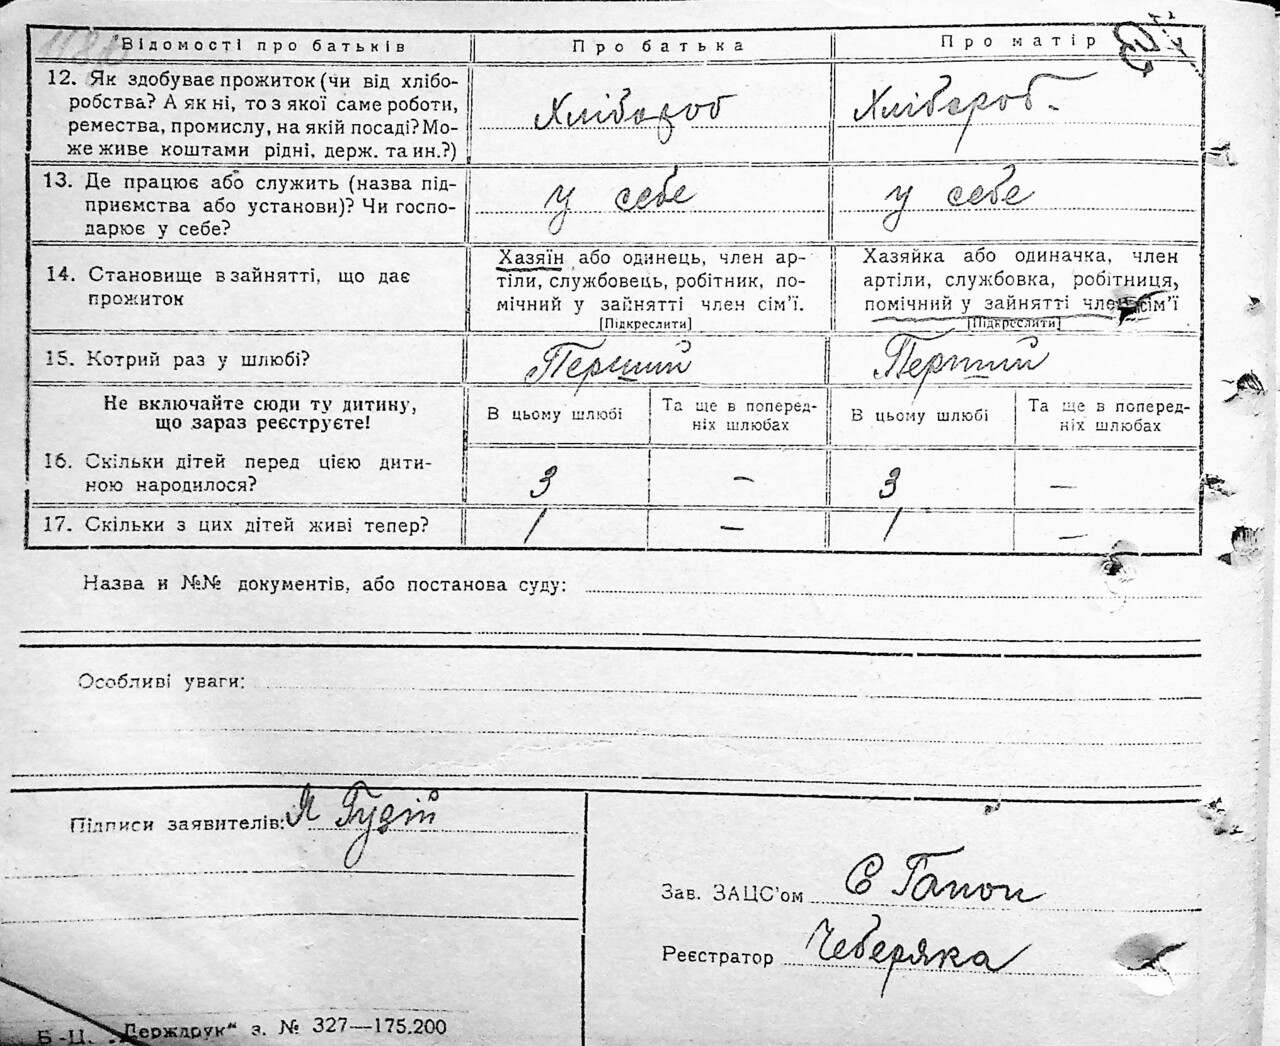 Відомості про батьків Про батька Про матір
12. Як здобуває прожиток (чи від хлібо-
робства? А як ні, то з якої саме роботи,
ремества, промислу, на якій посаді? Мо-
же живе коштами рідні, держ. та ин.?)
Хлібороб Хлібороб.
13. Де працює або служить (назва під-
приємства або установи)? Чи госпо-
дарює у себе?
у себе у себе
14. Становище в зайнятті, що дає
прожиток
Хазяїн або одинець, член ар-
тіли, службовець, робітник, по-
мічний у зайнятті член сім'ї.
[Підкреслити]
Хазяйка або одиначка, член
артіли, службовка, робітниця,
помічний у зайнятті член сім'ї
[Підкреслити]
15. Котрий раз у шлюбі? Перший Перший
Не включайте сюди ту дитину,
що зараз реєструєте!
В цьому шлюбі Та ще в поперед-
ніх шлюбах В цьому шлюбі Та ще в поперед-
ніх шлюбах
16. Скільки дітей перед цією дити-
ною народилося?
3 — 3 —
17. Скільки з цих дітей живі тепер? 1 — 1 —
Назва и №№ документів, або постанова суду:
Особливі уваги:
Підписи заявителів: Я Гудій
Зав. ЗАЦС'ом Є Гапон
Реєстратор Чеберяка
Б.-Ц. „Держдрук“ з. № 327—175.200